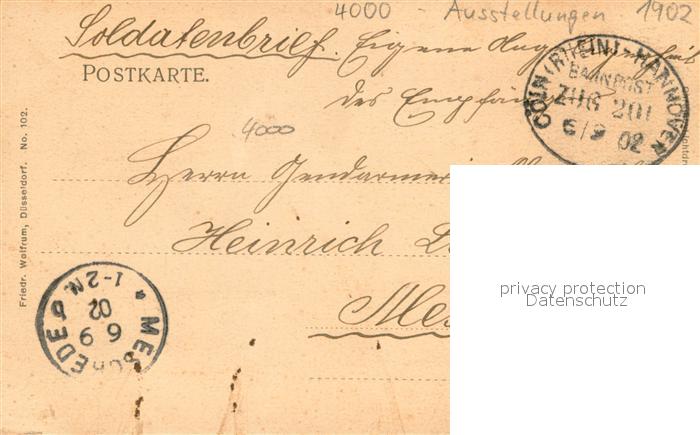 4000 - Ausstellungen 1902
Soldatenbrief. Eigene Angelegenheit
POSTKARTE.
des Empfän
CÖLN (RHEIN)-HANNOVER
BAHNPOST
ZUG 201
6/9 02
4000
Herrn Gendarmerie
Heinrich
Me
Friedr. Wolfrum, Düsseldorf. No. 102.
MESCHEDE
6 9
02
1-2N.
privacy protection
Datenschutz